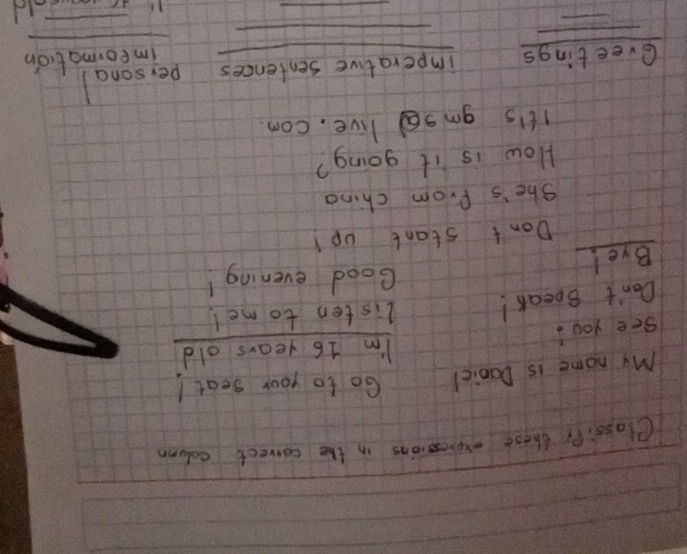 Classify these expressions in the correct column
My name is Daniel
Go to your seat!
See you!
I'm 16 years old
Don't Speak!
Listen to me!
Bye!
Good evening!
Don't stant up!
She's from china
How is it going?
It's gms@live.com
Greetings
imperative sentences
personal
information
I'm 16 years old